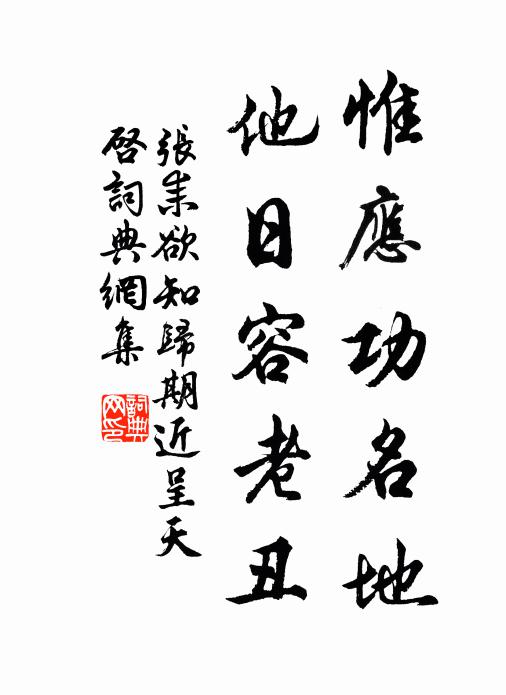 惟應功名地
他日容老丑
張耒欲知歸期近呈天
啓詞典網集
詞典网印